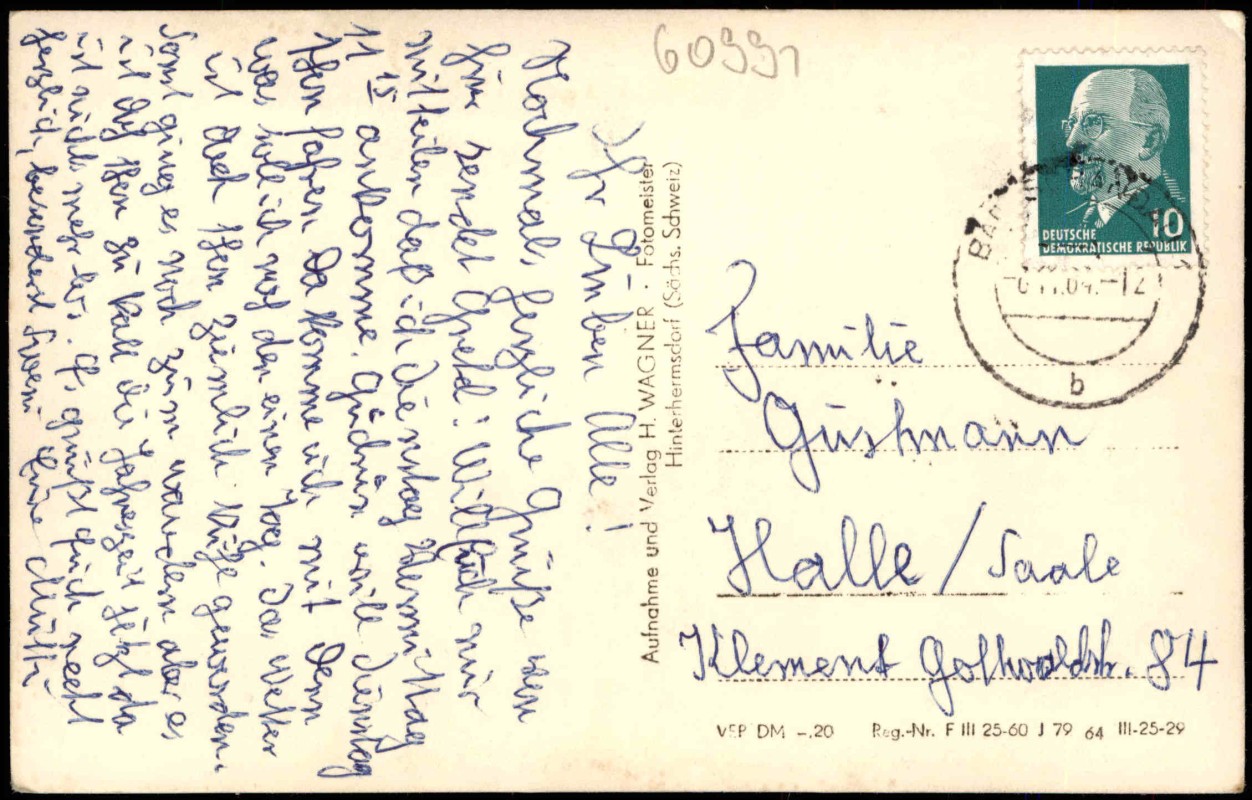 60991
Ihr Lieben Alle!
Nochmals herzliche Grüße von
hier sendet Gretel! Will Euch nur
mitteilen daß ich Dienstag Vormittag
11 15 ankomme. Gudrun will Dienstag
fahren Da komme ich mit denn
was soll ich noch den einen Tag. Das Wetter
ist doch ziemlich kühl geworden.
Sonst ging es noch zum wandern aber es
ist auch zu kalt die Jahreszeit jetzt da
ist nichts mehr los. Es grüßt Euch recht
herzlich, besonders Eure Mutti
Aufnahme und Verlag H. WAGNER · Fotomeister
Hinterhermsdorf (Sächs. Schweiz)
10
DEUTSCHE
DEMOKRATISCHE REPUBLIK
BAD SCHANDAU
64.-12
b
Familie
Gushmann
Halle / Saale
Klement Gottwaldstr. 84
VEP DM -.20 Reg.-Nr. F III 25-60 J 79 64 III-25-29